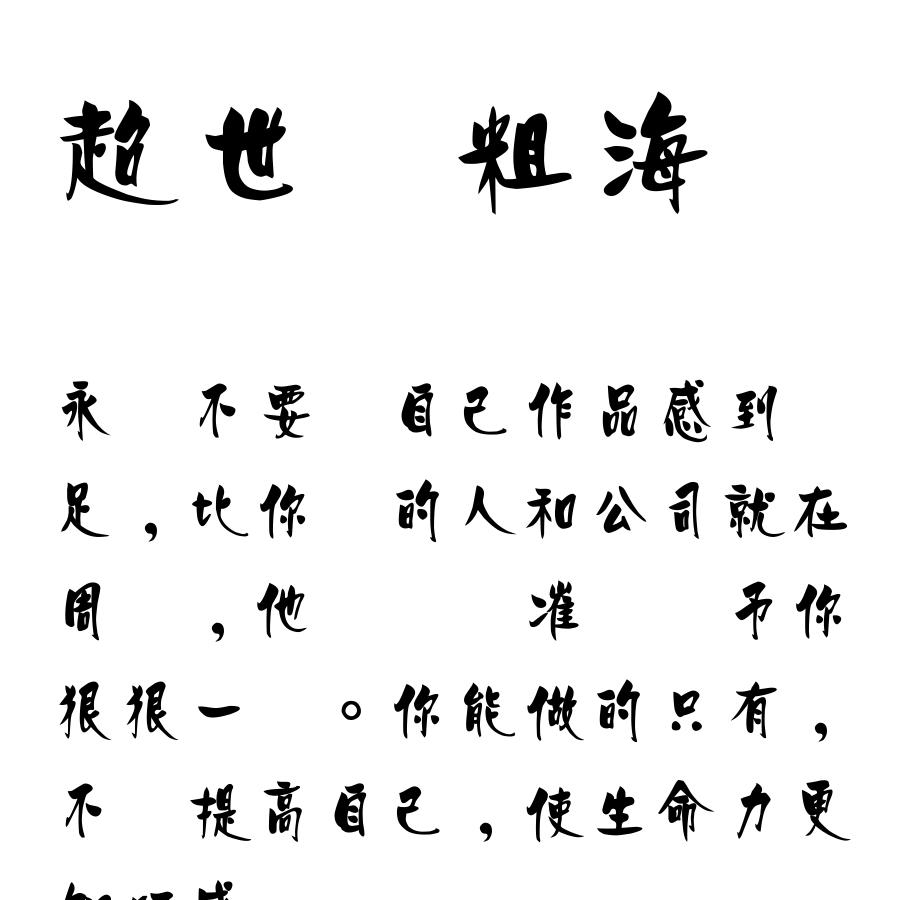 超世 粗海
永 不要 自己作品感到
足，比你 的人和公司就在
周 ，他 凗 予你
狠狠一 。你能做的只有，
不 提高自己，使生命力更